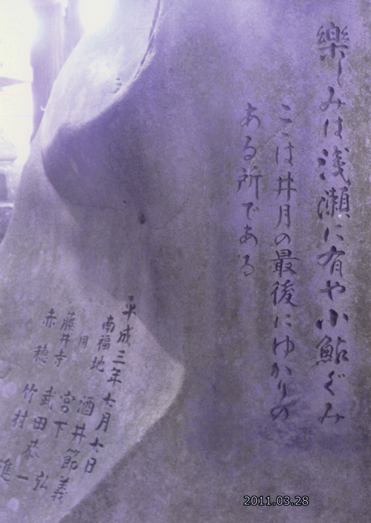 樂しみは浅瀬に有や小鮎ぐみ
ここは井月の最後にゆかりの
ある所である
平成三年七月十日
南福地 酒井節義
同 宮下
藤井寺 武田恭弘
赤穂 竹村
進一
2011.03.28